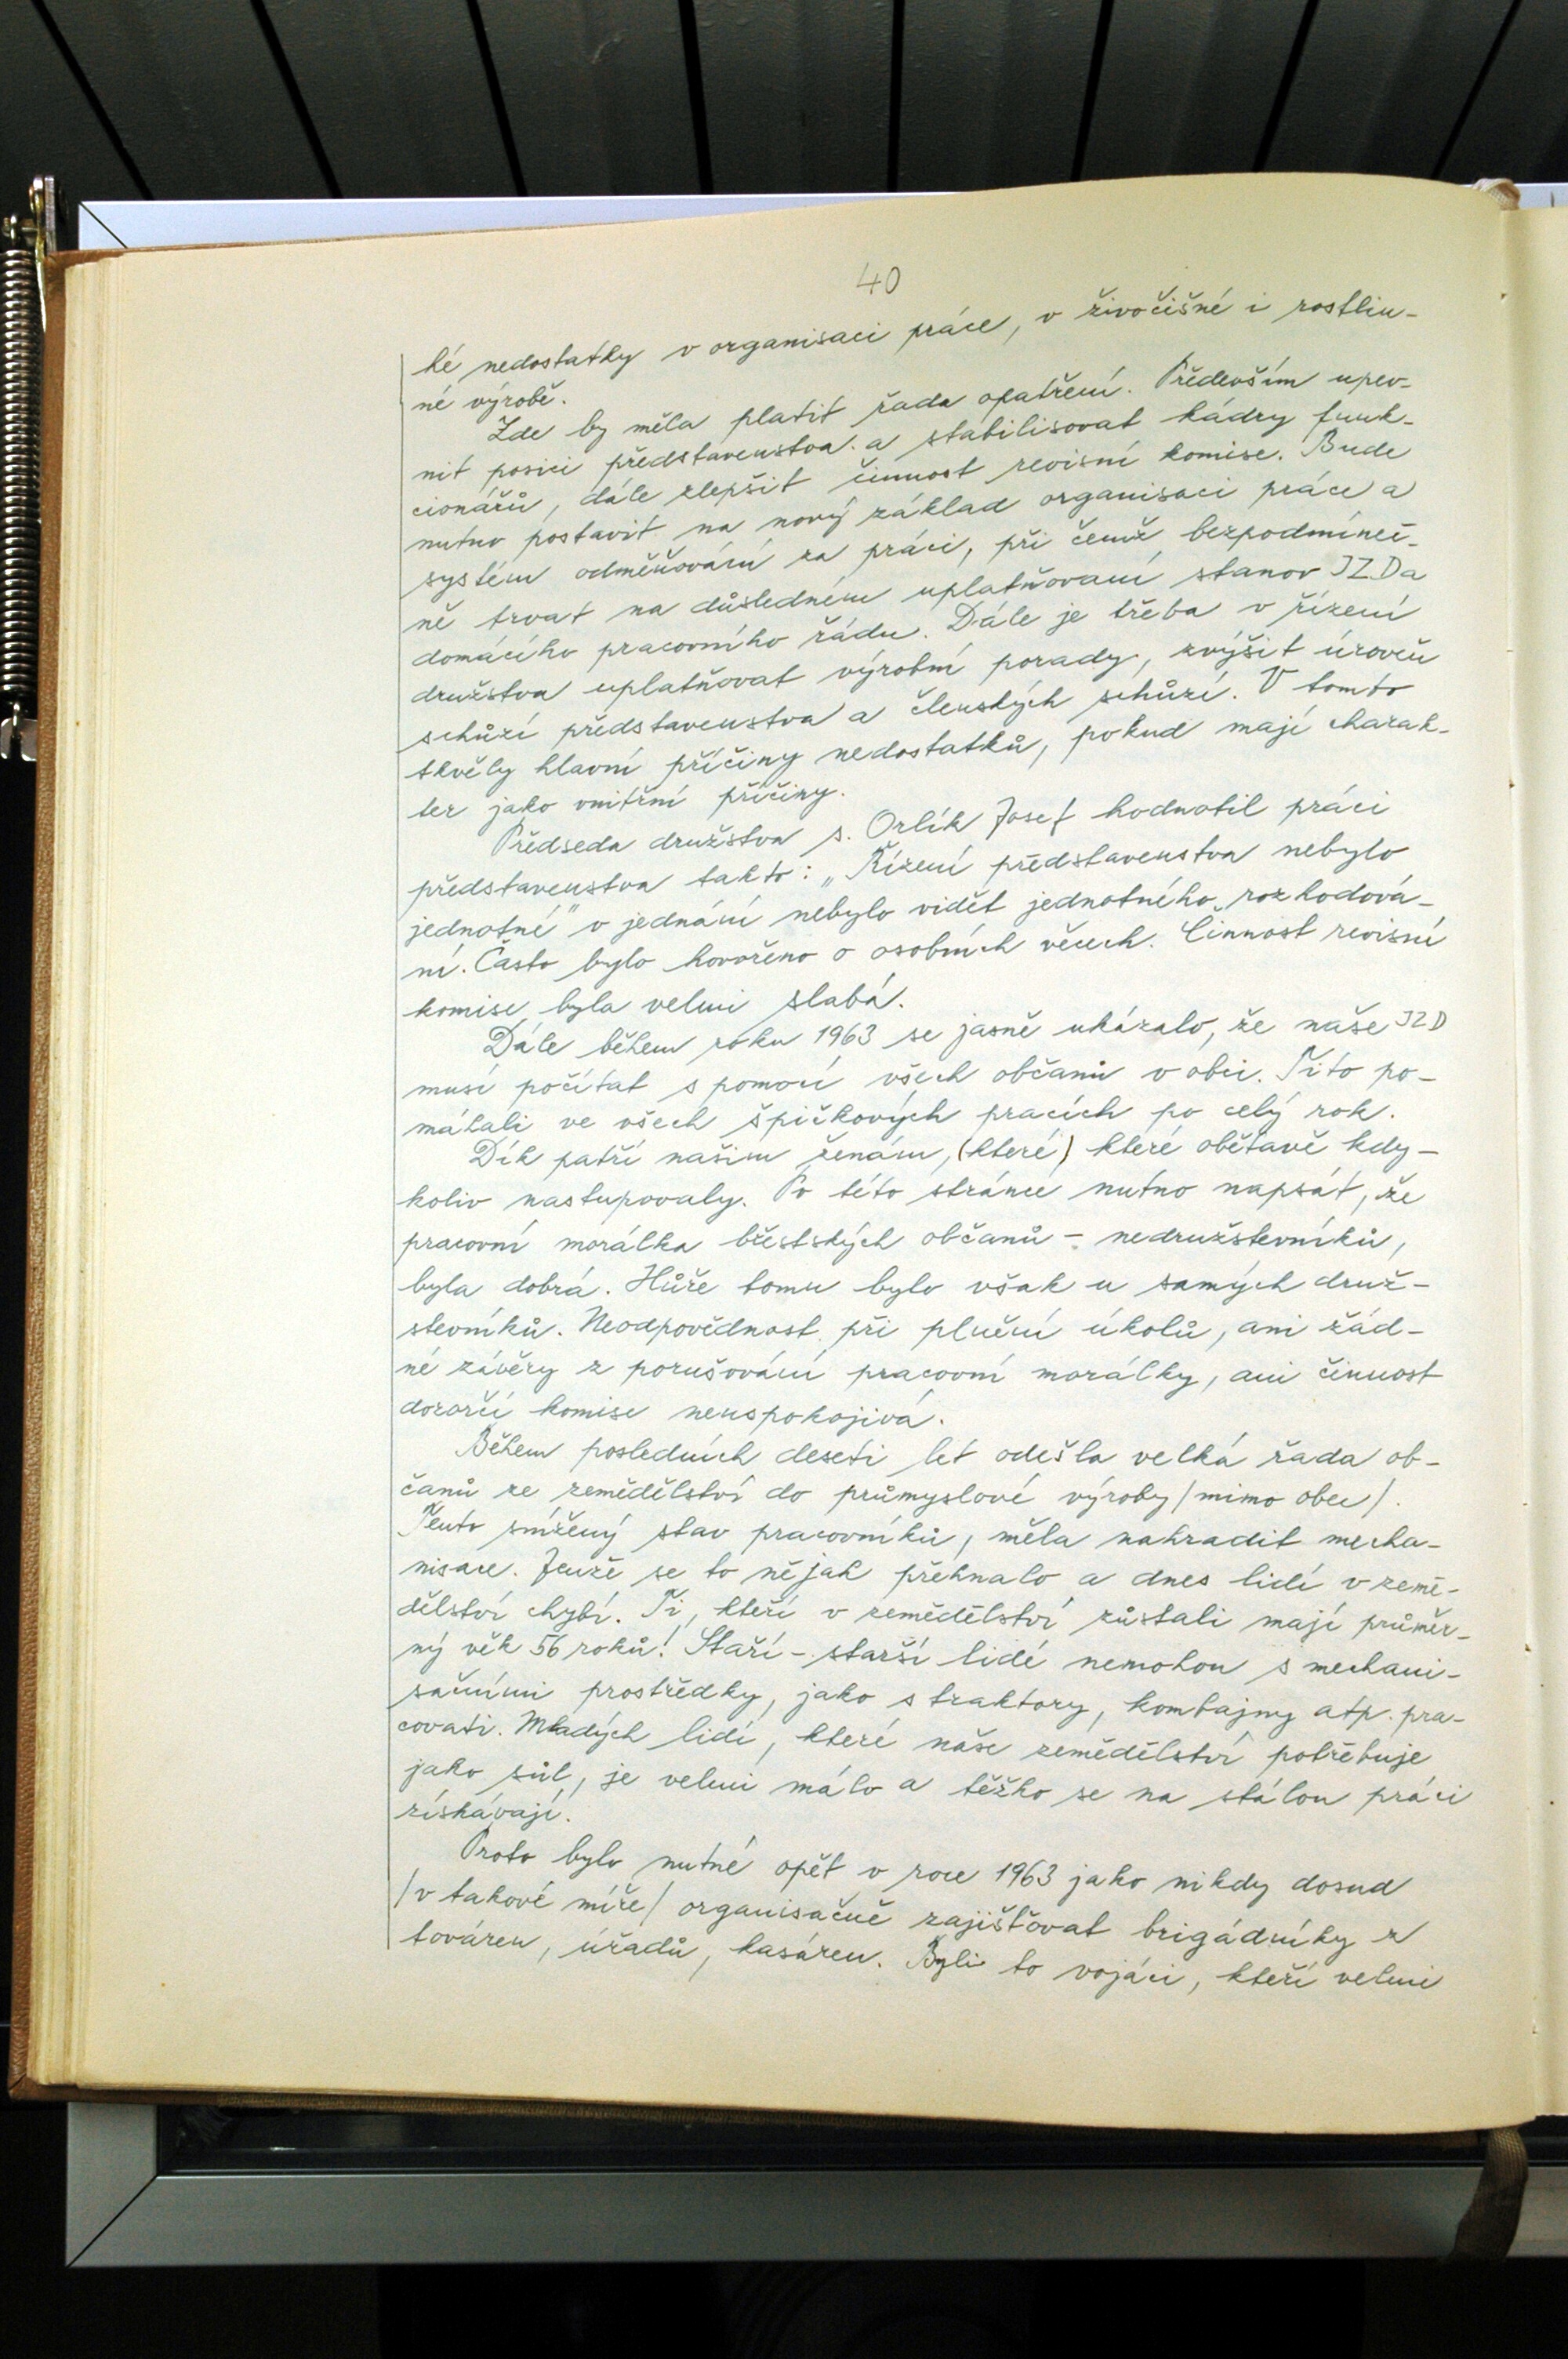 40
ké nedostatky v organisaci práce, v živočišné i rostlin-
né výrobě.
Zde by měla platit řada opatření. Především upev-
nit posici představenstva a stabilisovat kádry funk-
cionářů, dále zlepšit činnost revisní komise. Bude
nutno postavit na nový základ organisaci práce a
systém odměňování za práci, při čemž bezpodmíneč-
ně trvat na důsledném uplatňovaní stanov JZD a
domácího pracovního řádu. Dále je třeba v řízení
družstva uplatňovat výrobní porady, zvýšit úroveň
schůzí představenstva a členských schůzí. V tomto
tkvěly hlavní příčiny nedostatků, pokud mají charak-
ter jako vnitřní příčiny.
Předseda družstva s. Orlík Josef hodnotil práci
představenstva takto: „Řízení představenstva nebylo
jednotné" v jednání nebylo vidět jednotného rozhodová-
ní. Často bylo hovořeno o osobních věcech. Činnost revisní
komise byla velmi slabá.
Dále během roku 1963 se jasně ukázalo, že naše JZD
musí počítat s pomocí všech občanů v obci. Tito po-
máhali ve všech špičkových pracích po celý rok.
Dík patří našim ženám, (které) které obětavě kdy-
koliv nastupovaly. Po této stránce nutno napsat, že
pracovní morálka břestských občanů - nedružstevníků,
byla dobrá. Hůře tomu bylo však u samých druž-
stevníků. Neodpovědnost při plnění úkolů, ani žád-
né závěry z porušování pracovní morálky, ani činnost
dozorčí komise neuspokojivá.
Během posledních deseti let odešla velká řada ob-
čanů ze zemědělství do průmyslové výroby /mimo obec/.
Tento snížený stav pracovníků, měla nahradit mecha-
nisace. Jenže se to nějak přehnalo a dnes lidí v země-
dělství chybí. Ti, kteří v zemědělství zůstali mají průměr-
ný věk 56 roků! Staří - starší lidé nemohou s mechani-
sačními prostředky, jako s traktory, kombajny atp. pra-
covati. Mladých lidí, které naše zemědělství potřebuje
jako sůl, je velmi málo a těžko se na stálou práci
získávají.
Proto bylo nutné opět v roce 1963 jako nikdy dosud
/v takové míře/ organisačně zajišťovat brigádníky z
továren, úřadů, kasáren. Byli to vojáci, kteří velmi